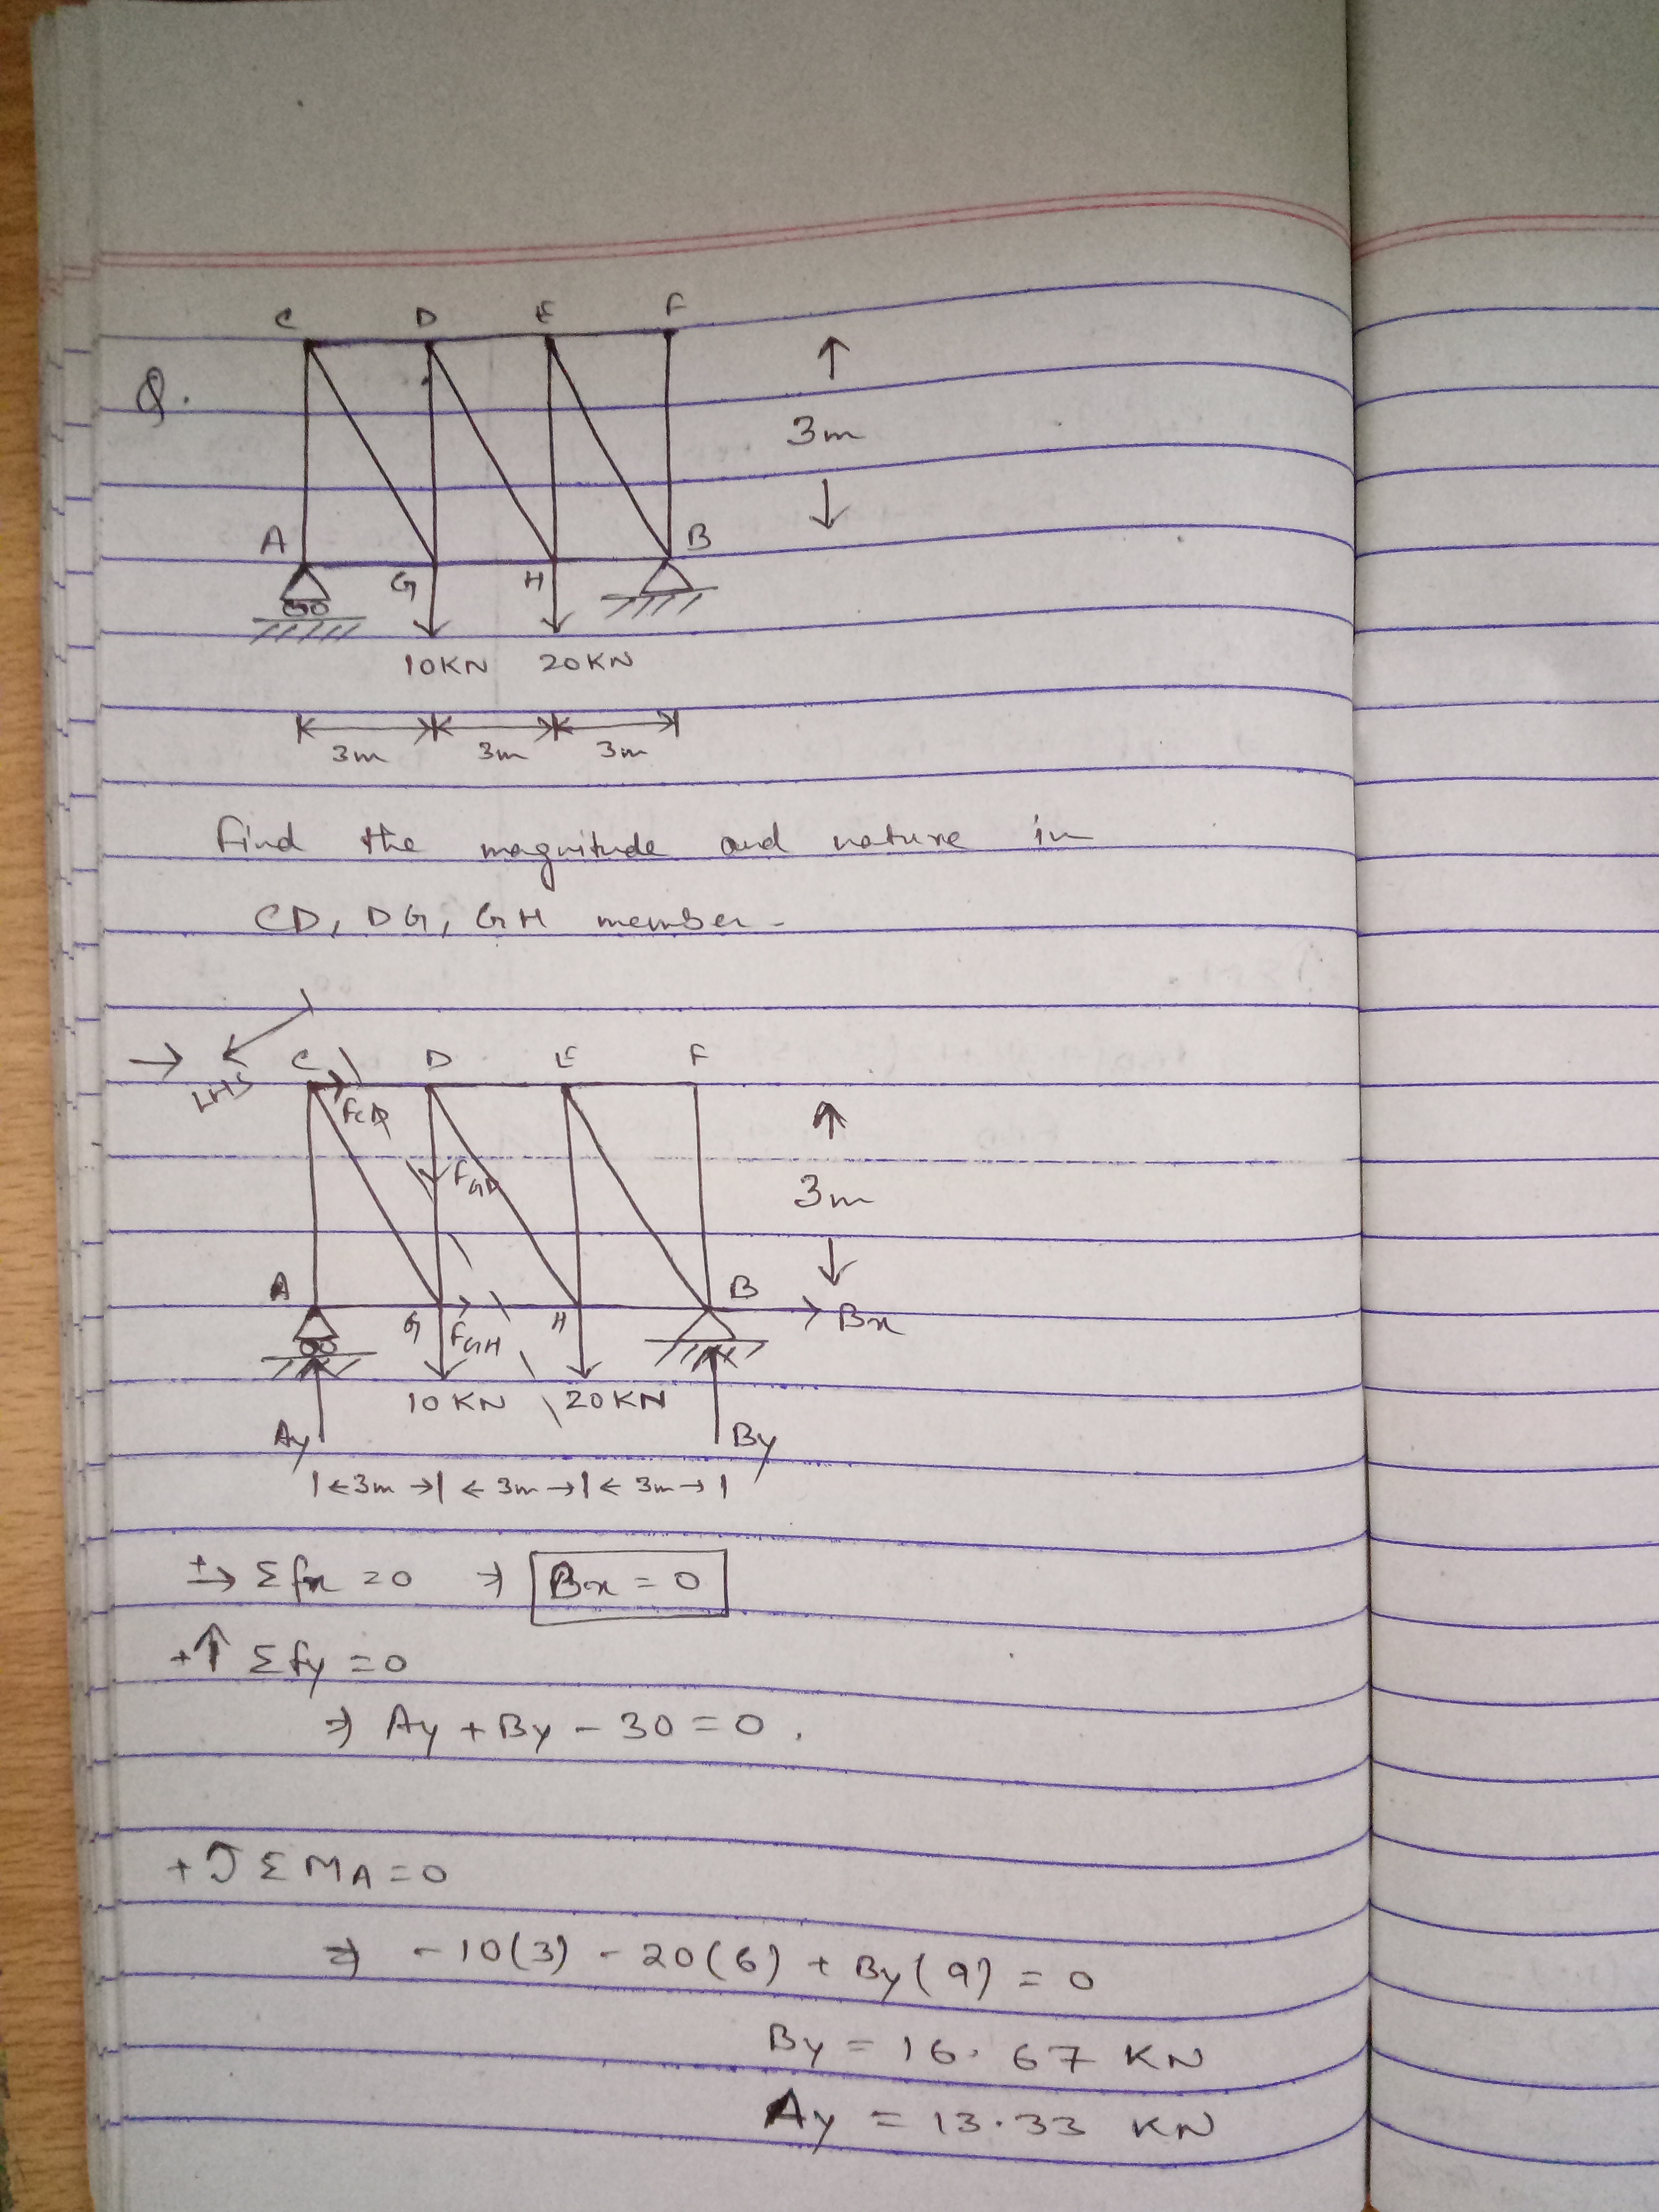 C D E F
Q.
3m
A B
G H
10KN 20KN
3m 3m 3m
find the magnitude and nature in
CD, DG, GH member.
→ LHS
C D E F
FCD
FGD
3m
A B
Bx
G FGH H
10 KN 20KN
Ay By
|←3m→|←3m→|←3m→|
+→ Σfx = 0 ⇒ Bx = 0
+↑ Σfy = 0
⇒ Ay + By - 30 = 0.
+↺ ΣMA = 0
⇒ -10(3) - 20(6) + By(9) = 0
By = 16.67 KN
Ay = 13.33 KN